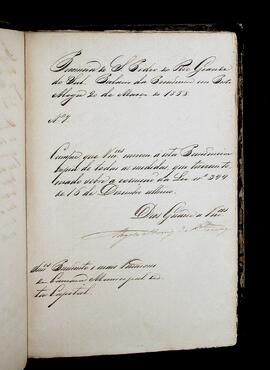 Provincia de S. Pedro do Rio Grande
do Sul. Palacio da Presidencia em Porto
Alegre 20 de Março de 1858
Nº 7
Cumpre que Vmces remettam a esta Presidencia
copia de todas as medidas que tiverem
tomado sobre a execução da Lei nº 394
de 15 de Dezembro ultimo.
Deos Guarde a Vmces
Snres Presidente e mais Vereadores
da Camara Municipal des
ta Capital.